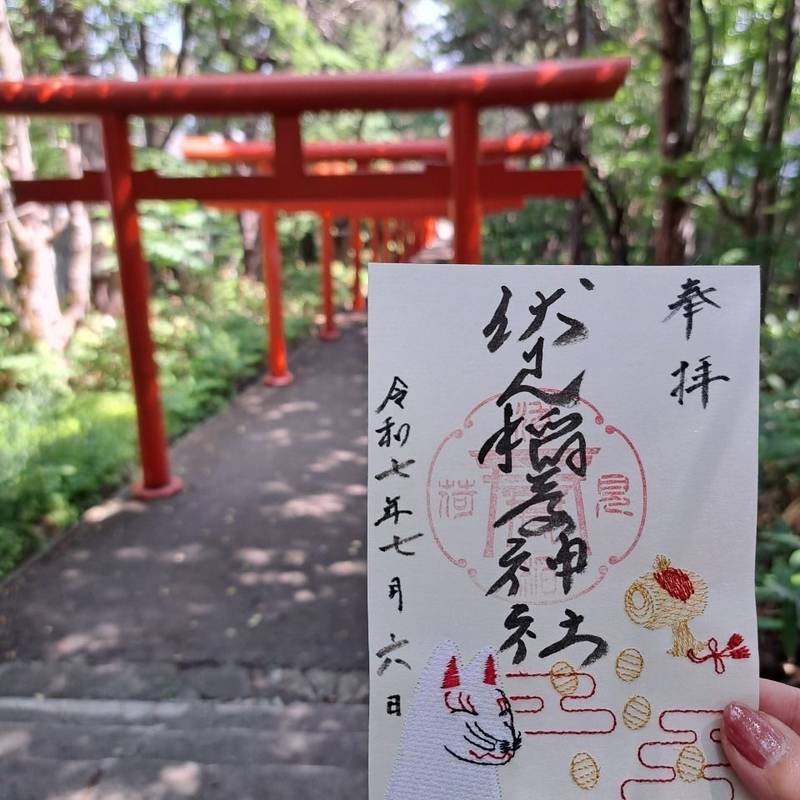 奉拝
伏見稲荷神社
令和七年七月六日
見
荷